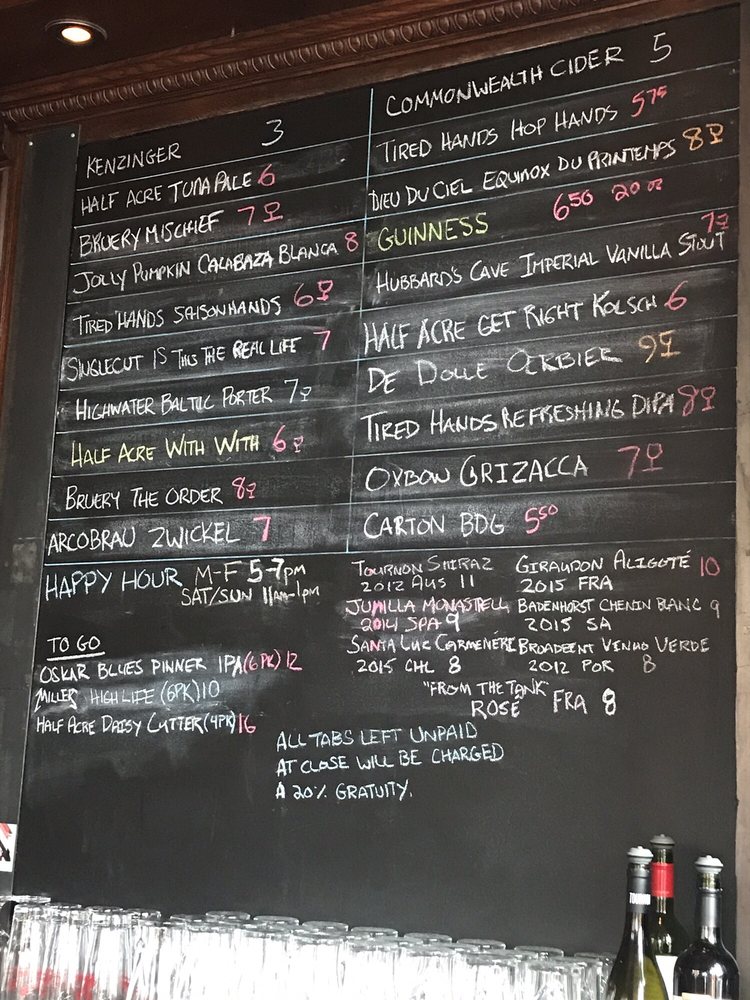 KENZINGER 3
HALF ACRE TUNA PALE 6
BRUERY MISCHIEF 7
JOLLY PUMPKIN CALABAZA BLANCA 8
TIRED HANDS SAISONHANDS 6
SINGLECUT IS THIS THE REAL LIFE 7
HIGHWATER BALTIC PORTER 7
HALF ACRE WITH WITH 6
BRUERY THE ORDER 8
ARCOBRAU ZWICKEL 7
COMMONWEALTH CIDER 5
TIRED HANDS HOP HANDS 5 75
DIEU DU CIEL EQUINOX DU PRINTEMPS 8
GUINNESS 6 50 20 oz
HUBBARD'S CAVE IMPERIAL VANILLA STOUT 7
HALF ACRE GET RIGHT KOLSCH 6
DE DOLLE OERBIER 9
TIRED HANDS REFRESHING DIPA 8
OXBOW GRIZACCA 7
CARTON BDG 5 50
HAPPY HOUR M-F 5-7pm
SAT/SUN 11am-1pm
TO GO
OSKAR BLUES PINNER IPA (6PK) 12
MILLER HIGH LIFE (6PK) 10
HALF ACRE DAISY CUTTER (4PK) 16
TOURNON SHIRAZ
2012 AUS 11
JUMILLA MONASTRELL
2014 SPA 9
SANTA LUZ CARMENÉRE
2015 CHL 8
GIRAUDON ALIGOTÉ 10
2015 FRA
BADENHORST CHENIN BLANC 9
2015 SA
BROADBENT VINHO VERDE
2012 POR 8
"FROM THE TANK"
ROSÉ FRA 8
ALL TABS LEFT UNPAID
AT CLOSE WILL BE CHARGED
A 20% GRATUITY.